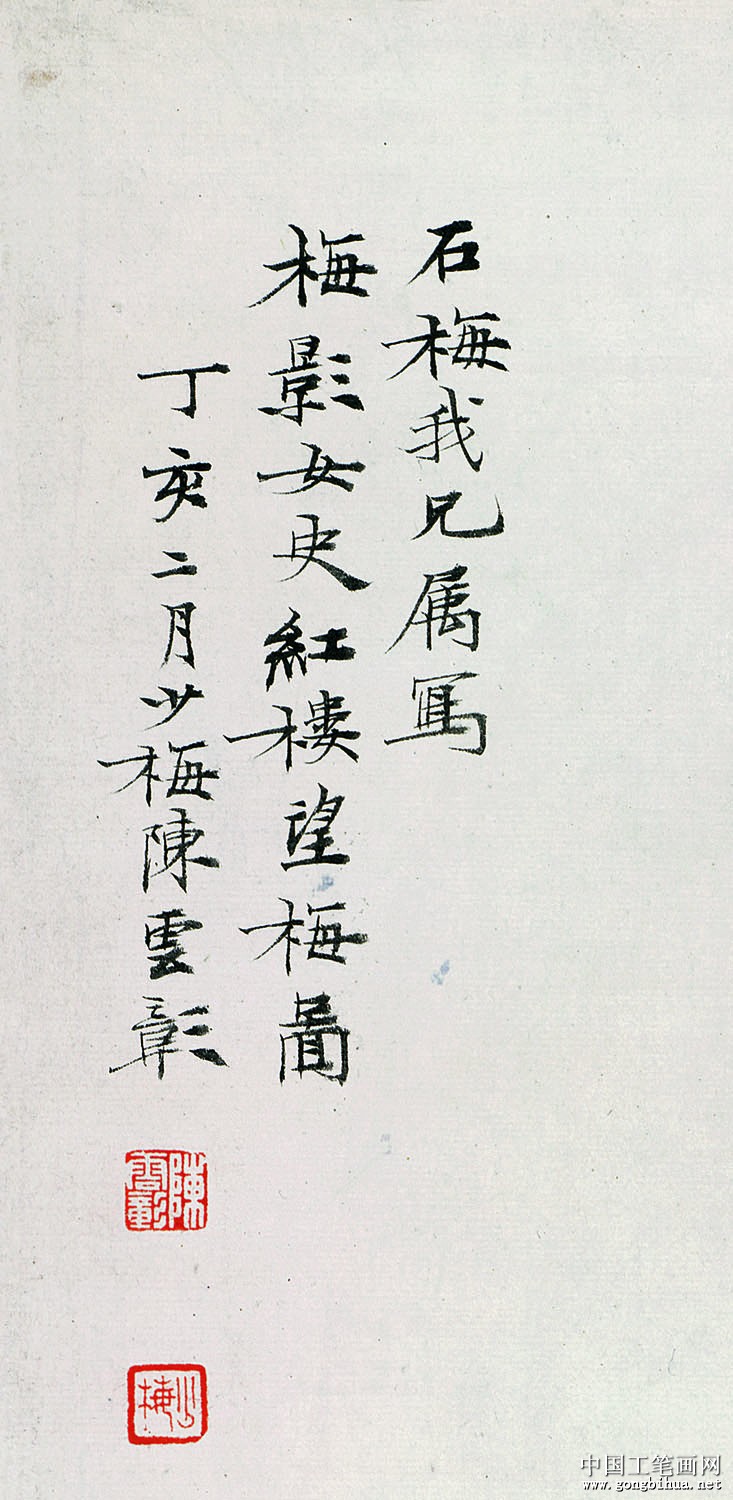 石梅我兄属寫
梅影女史紅楼望梅啚
丁亥二月少梅陳雲彰
陳雲彰
少梅
中国工笔画网
www.gongbihua.net